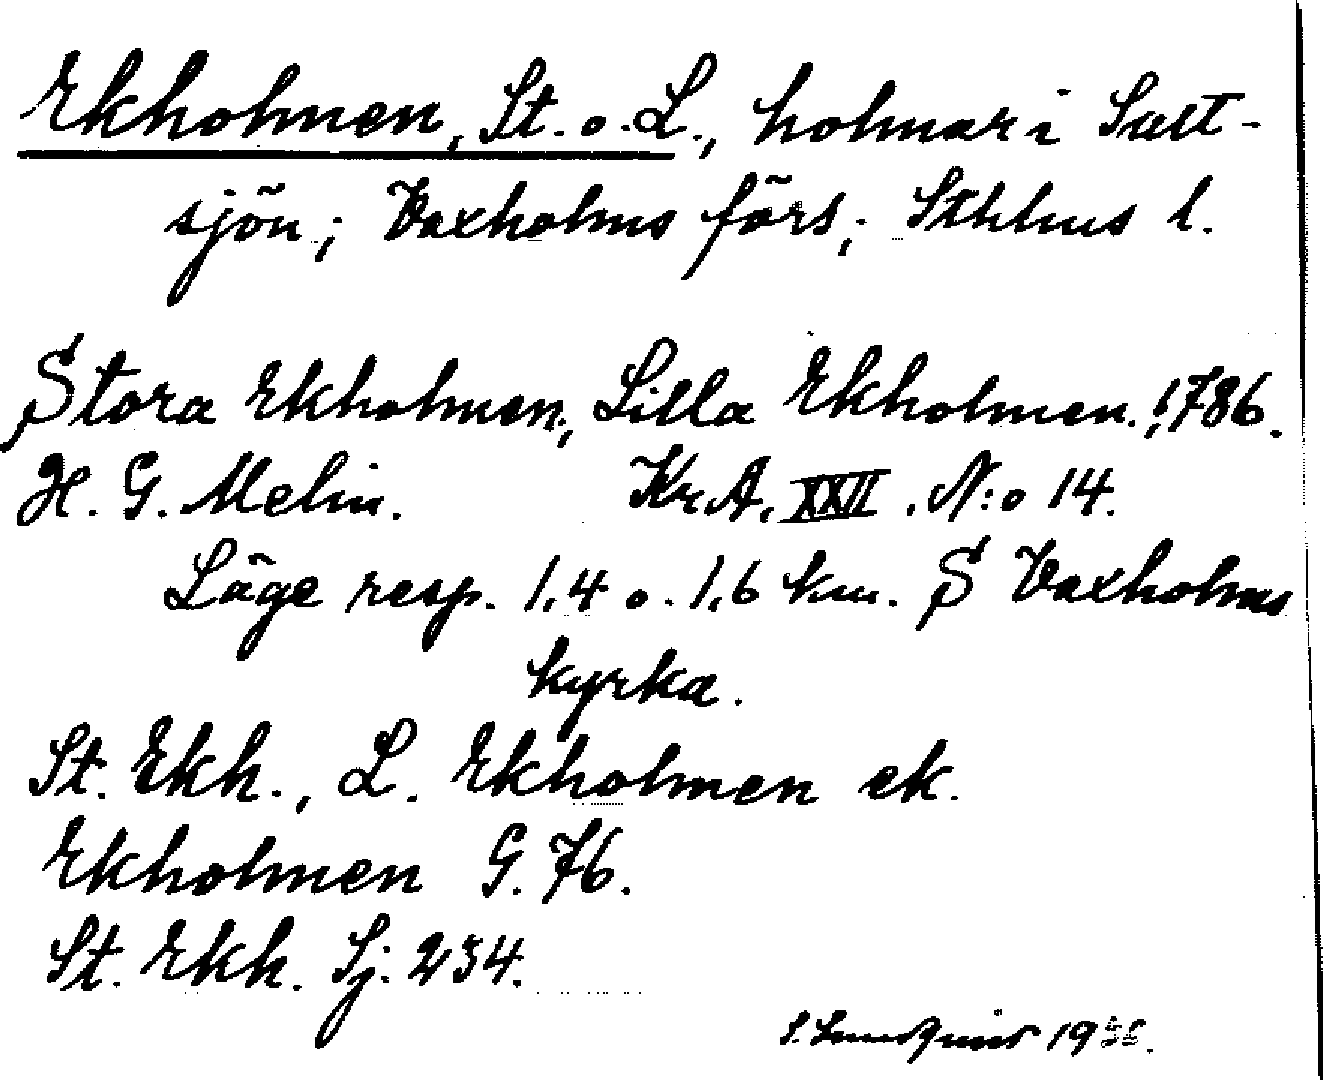 Ekholmen, St. o. L., holmar i Salt-
sjön; Vaxholms förs; Sthlms l.
Stora Ekholmen, Lilla Ekholmen. 1786.
H. G. Melin. Kr.A. XXII. N:o 14.
Läge resp. 1,4 o. 1,6 km. S Vaxholms
kyrka.
St. Ekh., L. Ekholmen ek.
Ekholmen G. 76.
St. Ekh. Sj. 234.
S. Lundquist